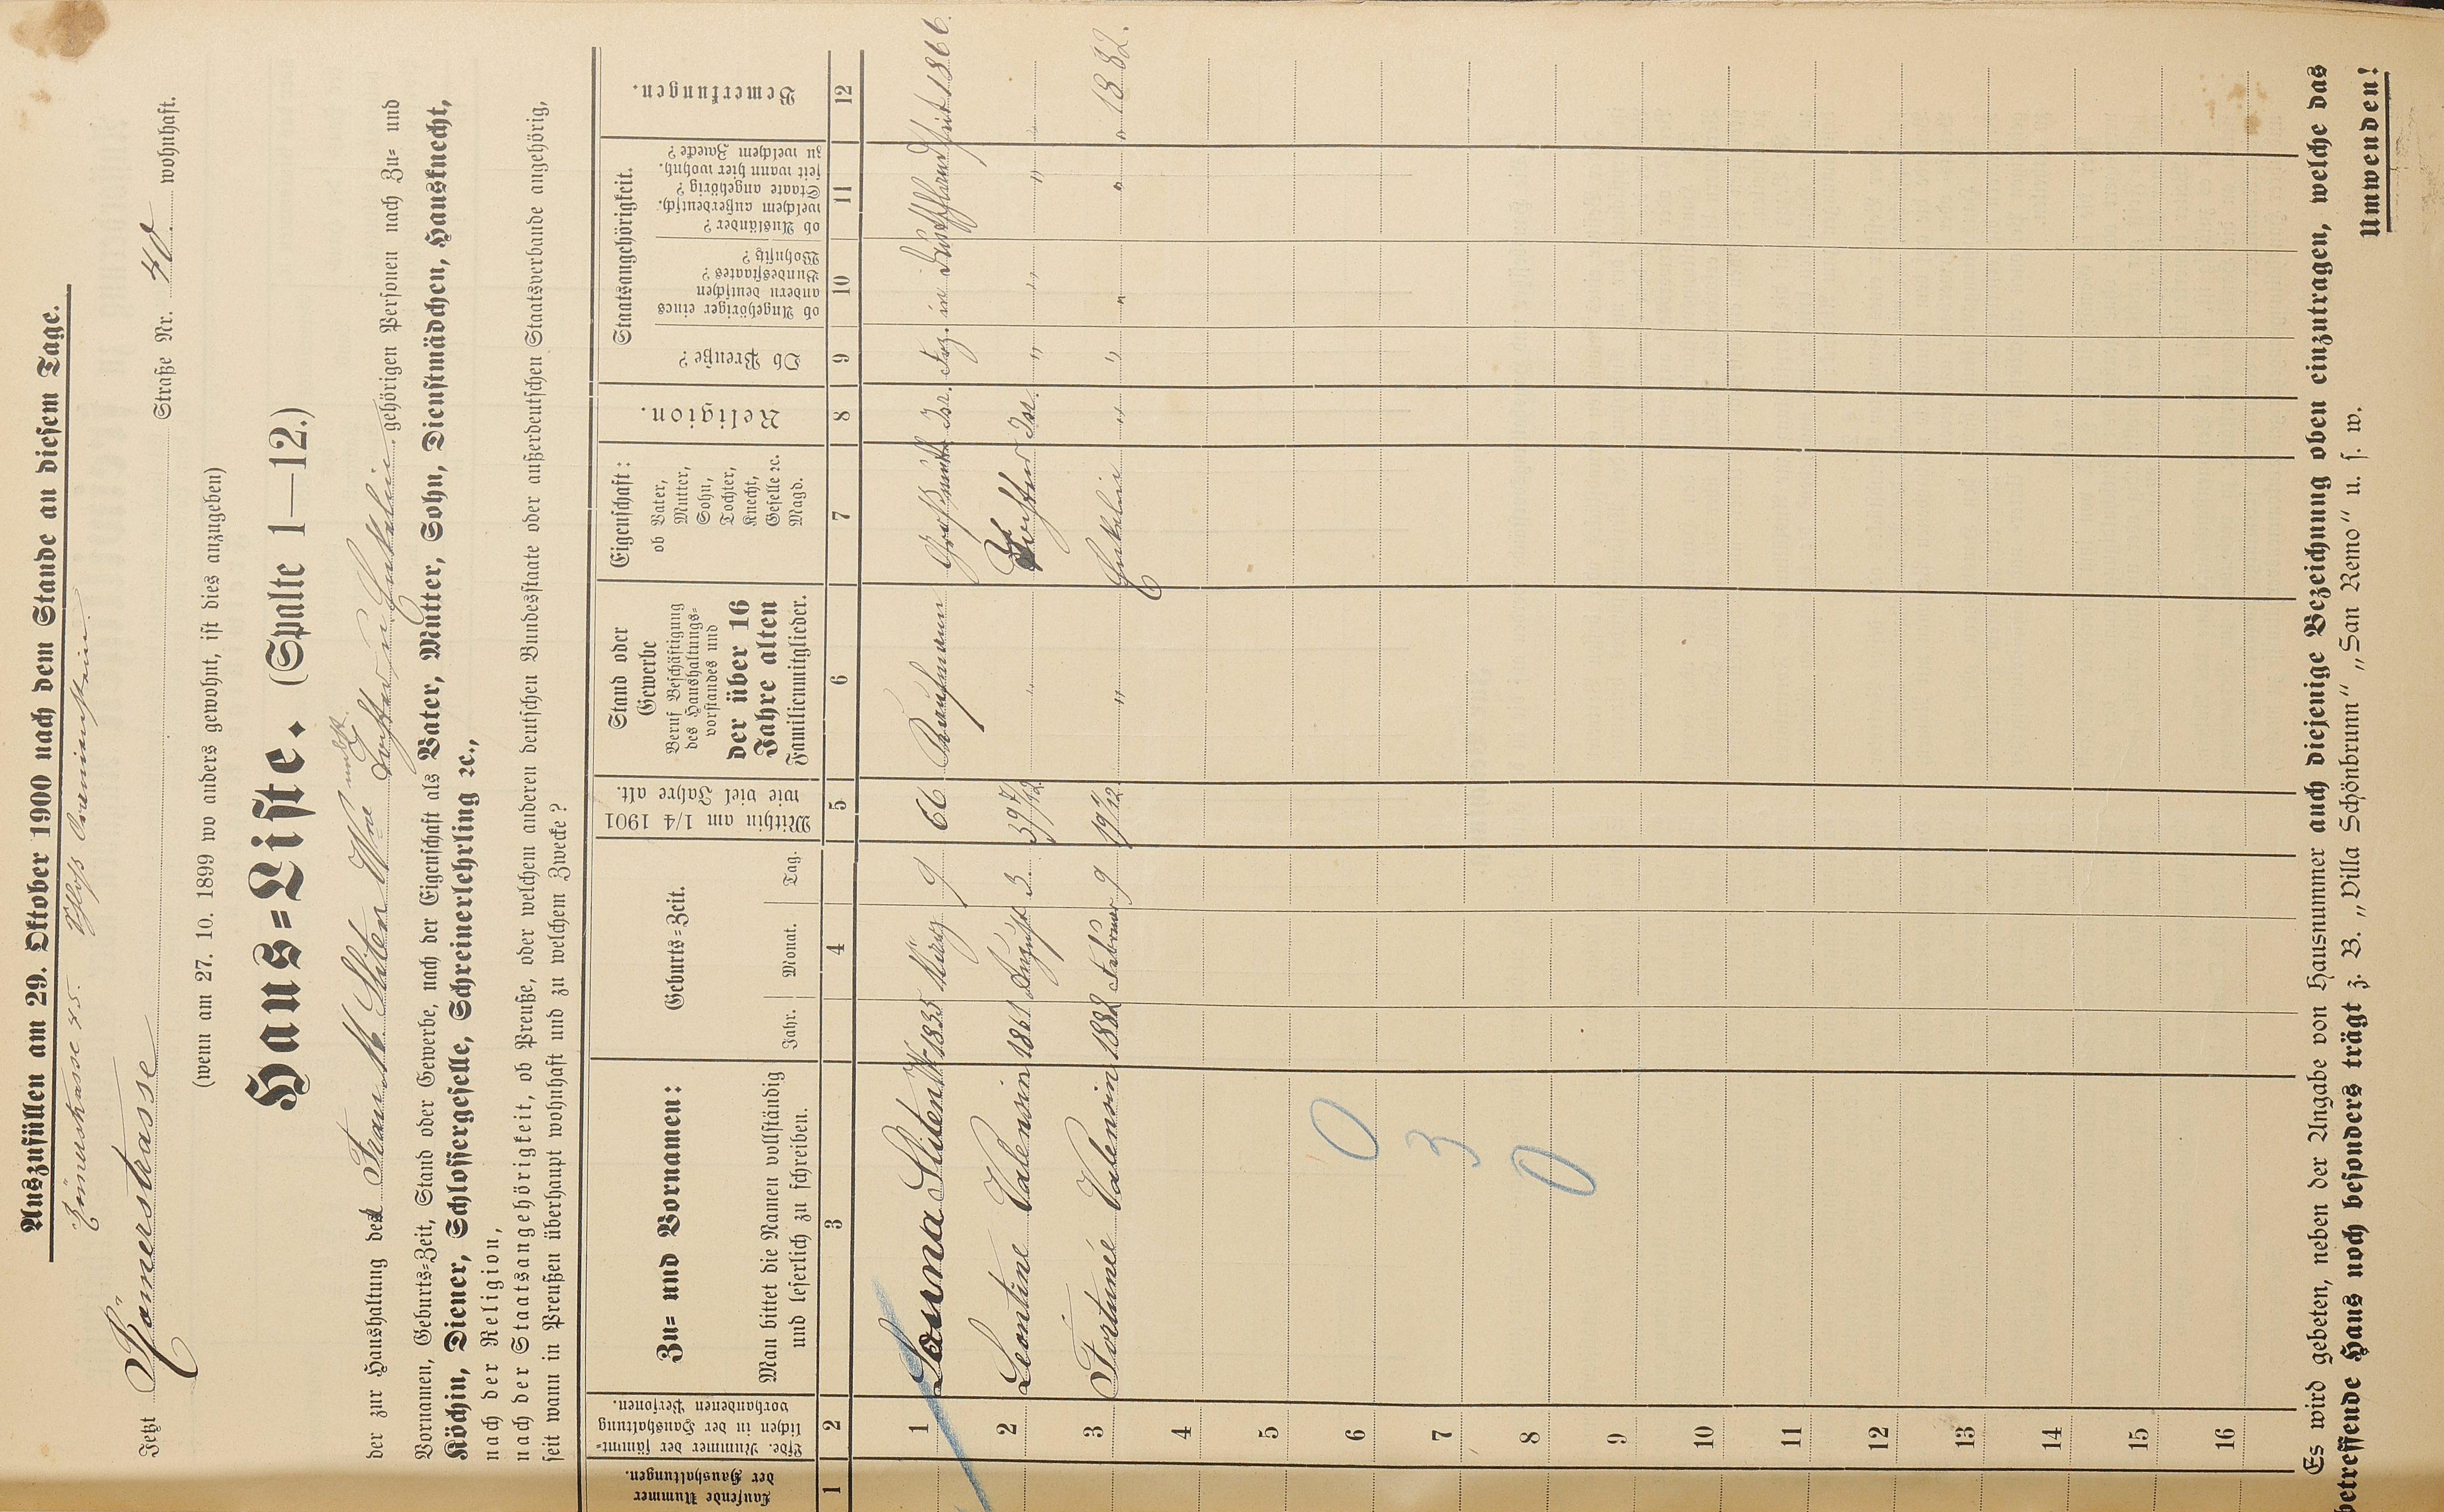 Auszufüllen am 29. Oktober 1900 nach dem Stande an diesem Tage.
Römerstrasse 45.
Jetzt Römerstrasse Straße Nr. 40 wohnhaft.
(wenn am 27. 10. 1899 wo anders gewohnt, ist dies anzugeben)
Haus=Liste. (Spalte 1—12.)
der zur Haushaltung der Frau Wwe Tochter u Enkelin gehörigen Personen nach Zu= und
Vornamen, Geburts=Zeit, Stand oder Gewerbe, nach der Eigenschaft als Vater, Mutter, Sohn, Dienstmädchen, Hausknecht,
Köchin, Diener, Schlossergeselle, Schreinerlehrling ꝛc.,
nach der Religion,
nach der Staatsangehörigkeit, ob Preuße, oder welchem anderen deutschen Bundesstaate oder außerdeutschen Staatsverbande angehörig,
seit wann in Preußen überhaupt wohnhaft und zu welchem Zwecke?
Laufende Nummer der Haushaltungen.
Lfde. Nummer der sämmt=lichen in der Haushaltung vorhandenen Personen.
Zu= und Vornamen:
Man bittet die Namen vollständig und leserlich zu schreiben.
Geburts=Zeit.
Jahr. Monat. Tag.
Mithin am 1/4 1901 wie viel Jahre alt.
Stand oder Gewerbe
Beruf Beschäftigung des Haushaltungs=vorstandes und
der über 16 Jahre alten
Familienmitglieder.
Eigenschaft:
ob Vater, Mutter, Sohn, Tochter, Knecht, Geselle ꝛc. Magd.
Religion.
Staatsangehörigkeit.
Ob Preuße?
ob Angehöriger eines andern deutschen Bundesstaates? Wohnsitz?
ob Ausländer? welchem außerdeutsch. Staate angehörig? seit wann hier wohnh. zu welchem Zwecke?
Bemerkungen.
1 2 3 4 5 6 7 8 9 10 11 12
1 1835 März 9 66 Kaufmann Großmutter Isr. Frz. in Deutschland seit 1866.
2 Leontine Valensin 1861 August 3 39 7/12 " Tochter Isr. " " "
3 Fortunée Valensin 1882 Februar 9 19 1/12 " Enkelin " " " " " 1882.
4
5
6 0
7 3
8 0
9
10
11
12
13
14
15
16
Es wird gebeten, neben der Angabe von Hausnummer auch diejenige Bezeichnung oben einzutragen, welche das
betreffende Haus noch besonders trägt z. B. „Villa Schönbrunn“ „San Remo“ u. s. w.
Umwenden!